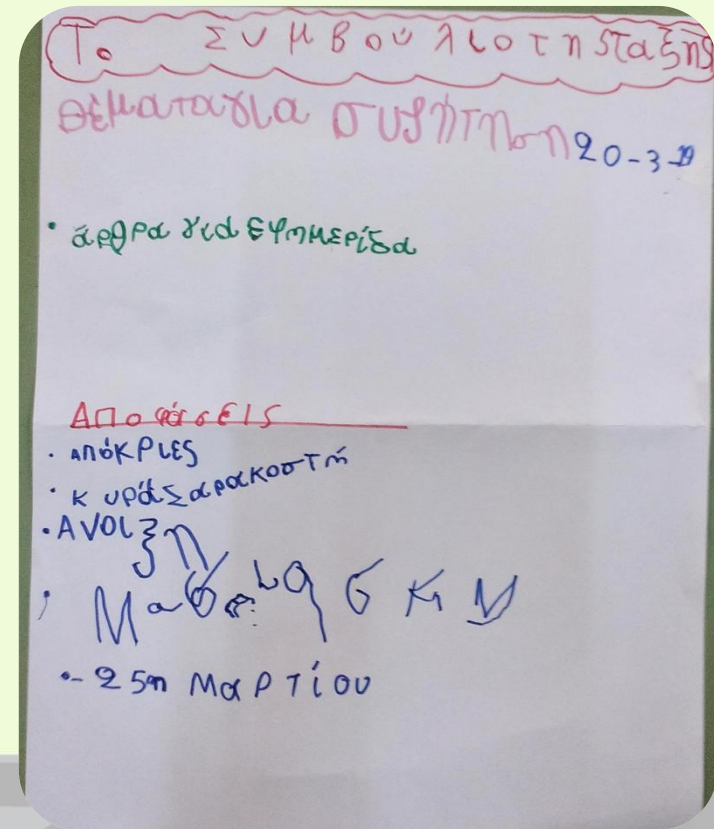 Το Συμβούλιο της ταξης
Θέματα για συζήτηση 20-3-19
• άρθρα για εφημερίδα
Αποφάσεις
• ΑΠόΚΡιες
• Κυρά Σαρακοστή
• ΑΝΟΙξη
• -25η Μαρτίου